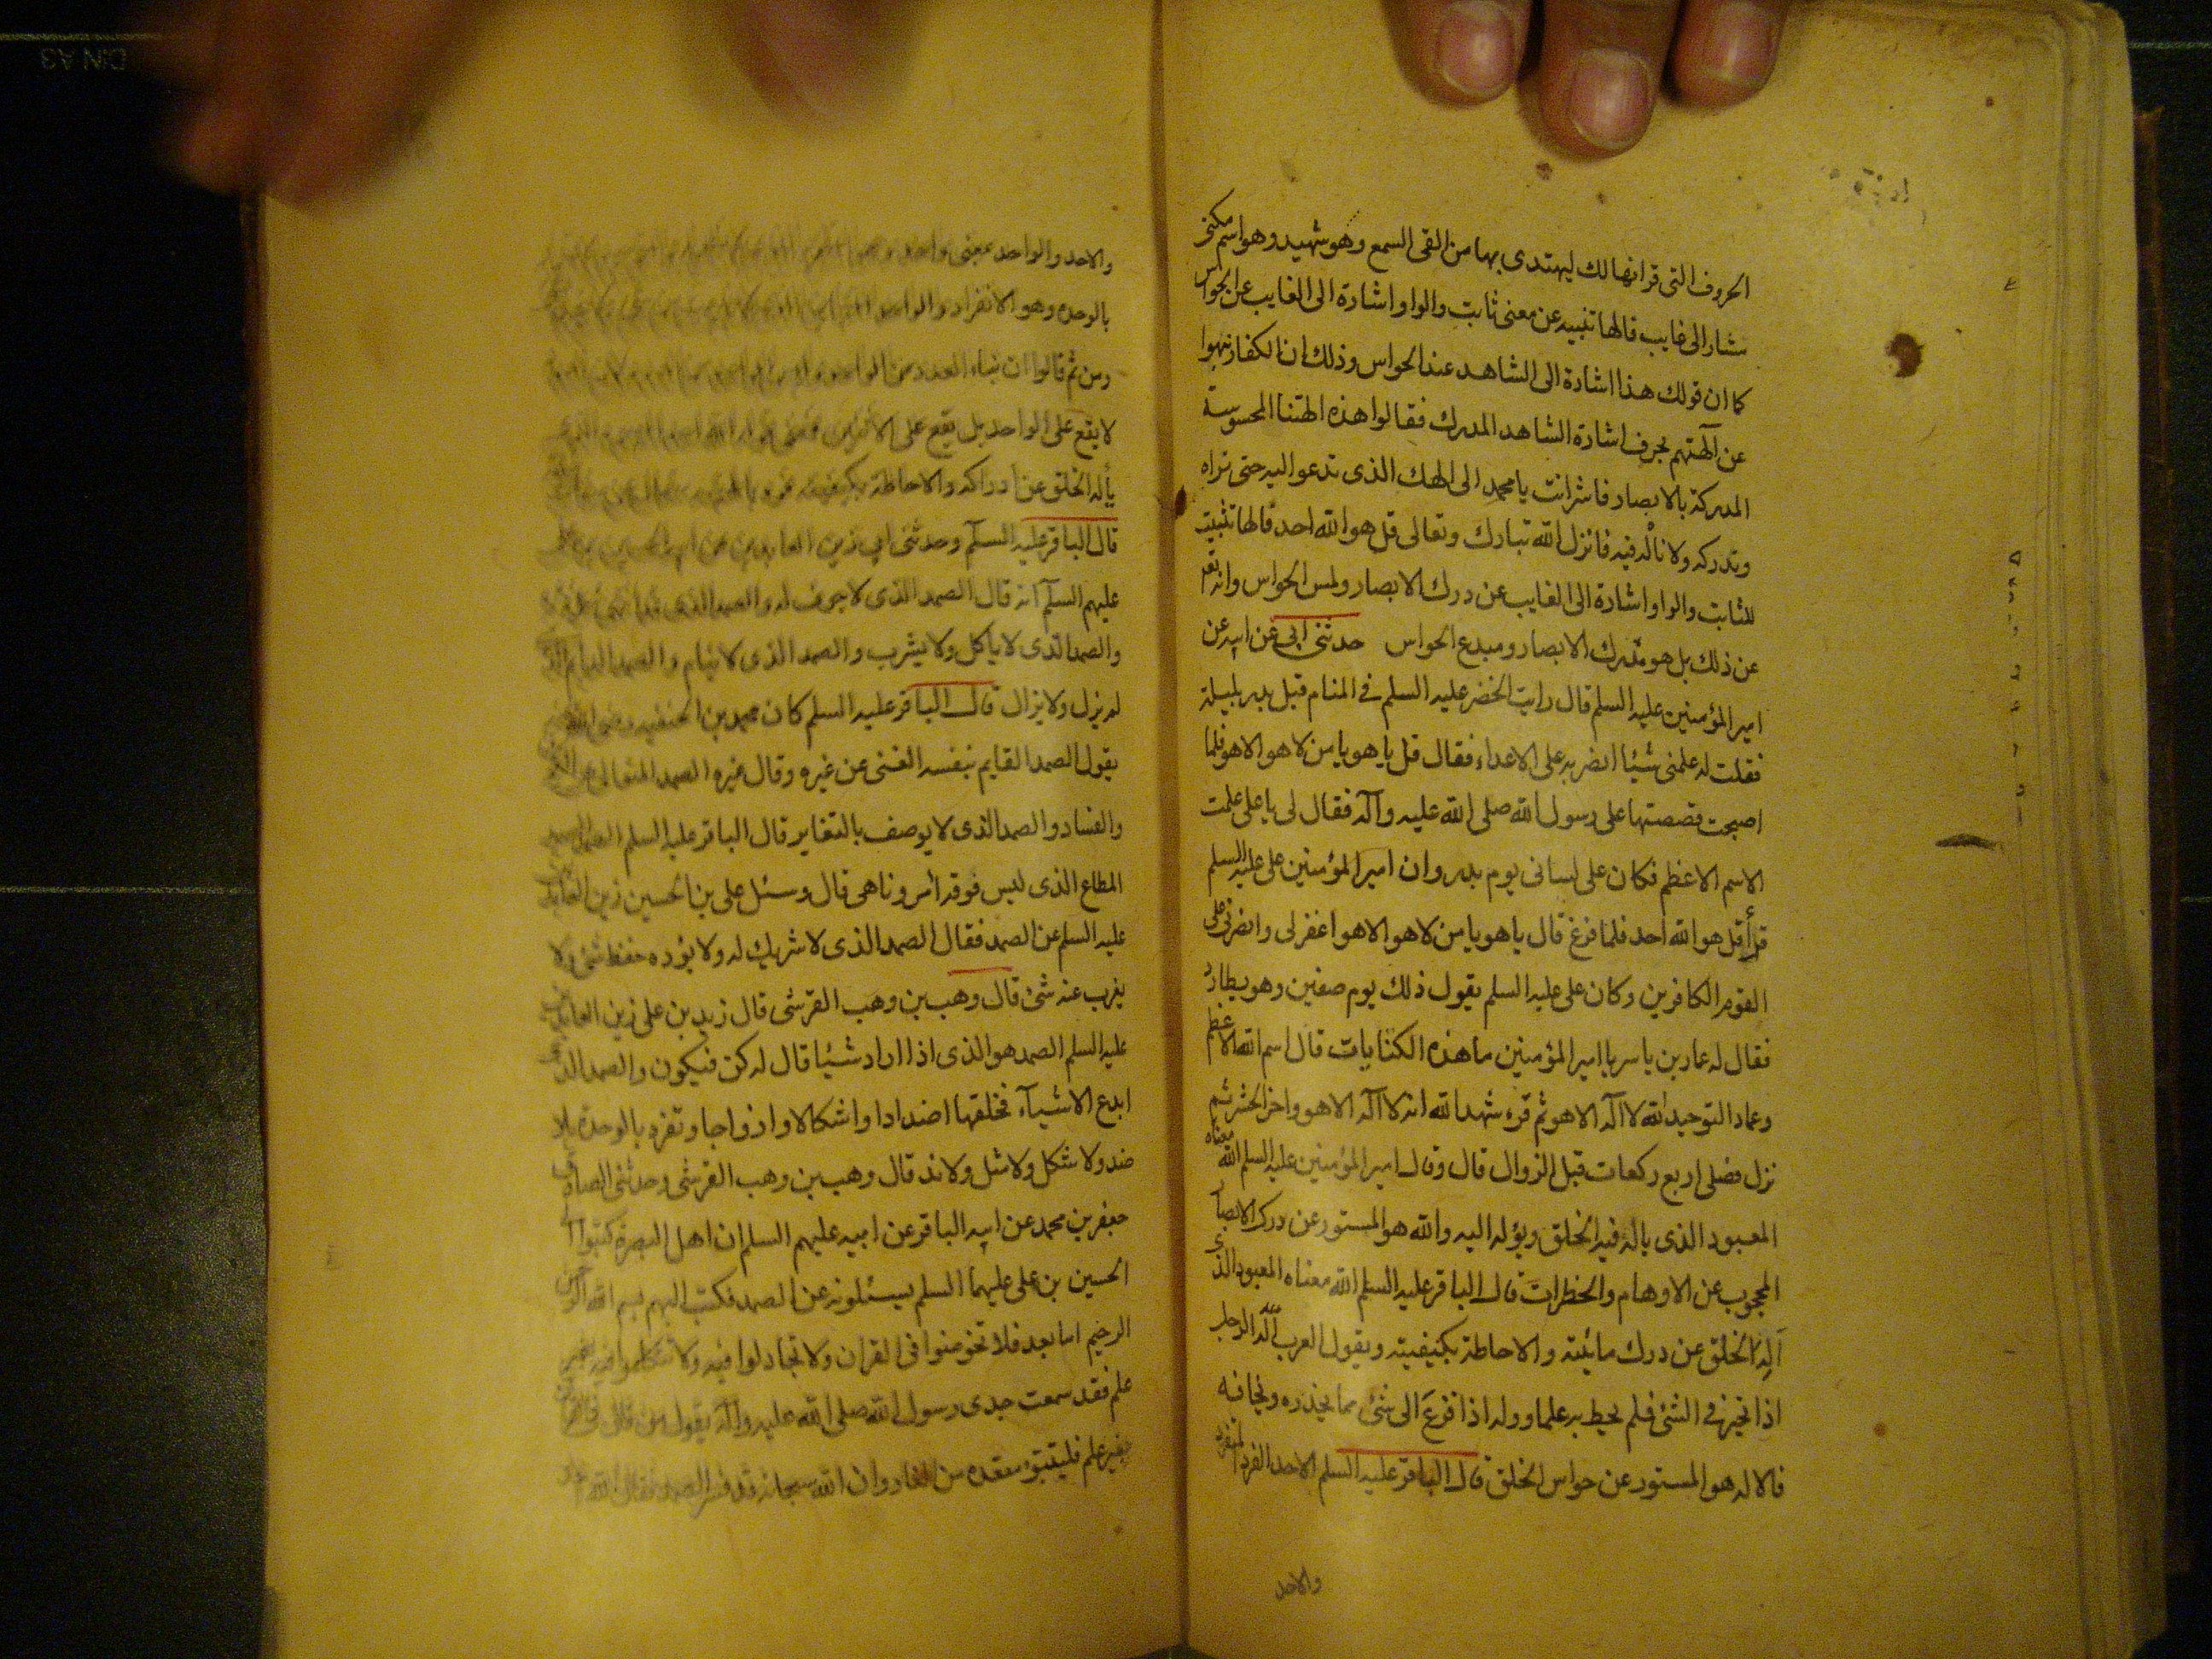 الحروف التى قرانها لك ليهتدى بها من القى السمع وهو شهيد وهو اسم مكنى
مشار الى غايب فالها تنبيه عن معنى ثابت والواو اشارة الى الغايب عن الحواس
كما ان قولك هذا اشارة الى الشاهد عند الحواس وذلك ان الكفار نبهوا
عن آلهتهم بحرف اشارة الشاهد المدرك فقالوا هذه الهتنا المحسوسة
المدركة بالابصار فاشر انت يا محمد الى الهك الذى تدعو اليه حتى نراه
وندركه ولا ناله فيه فانزل الله تبارك وتعالى قل هو الله احد فالها تثبيت
للثابت والواو اشارة الى الغايب عن درك الابصار ولمس الحواس وانه تعالى
عن ذلك بل هو مدرك الابصار ومبدع الحواس حدثنى ابى عن ابيه عن
امير المؤمنين عليه السلم قال رايت الخضر عليه السلم فى المنام قبل بدر بليلة
فقلت له علمنى شيئا انصر به على الاعداء فقال قل يا هو يا من لا هو الا هو فلما
اصبحت قصصتها على رسول الله صلى الله عليه وآله فقال لى يا على علمت
الاسم الاعظم فكان على لسانى يوم بدر وان امير المؤمنين على عليه السلم
قرأ قل هو الله احد فلما فرغ قال يا هو يا من لا هو الا هو اغفر لى وانصرنى على
القوم الكافرين وكان على عليه السلم يقول ذلك يوم صفين وهو يطارد
فقال له عمار بن ياسر يا امير المؤمنين ما هذه الكنايات قال اسم الله الاعظم
وعماد التوحيد لله لا آله الا هو ثم قرء شهد الله انه لا آله الا هو واخر الحشر ثم
نزل فصلى اربع ركعات قبل الزوال قال وقال امير المؤمنين عليه السلم الله معناه
المعبود الذى ياله فيه الخلق ويؤله اليه والله هو المستور عن درك الابصار
المحجوب عن الاوهام والخطرات قال الباقر عليه السلم الله معناه المعبود الذى
اله الخلق عن درك مائيته والاحاطة بكيفيته ويقول العرب اله الرجل
اذا تحير فى الشئ فلم يحط به علما ووله اذا فزع الى شئ مما يحذره ويخافه
فالاله هو المستور عن حواس الخلق قال الباقر عليه السلم الاحد الفرد المتفرد
والاحد
والاحد والواحد بمعنى واحد
بالوحدة وهو الانفراد والواحد
ومن ثم قالوا ان بناء العدد من الواحد
لا يقع على الواحد بل يقع على الاثنين
يأله الخلق عن ادراكه والاحاطة بكيفيته
قال الباقر عليه السلآم وحدثنى ابى زين العابدين عن ابيه الحسين بن على
عليهم السلآم انه قال الصمد الذى لا جوف له والصمد الذى
والصمد الذى لا ياكل ولا يشرب والصمد الذى لا ينام والصمد الدايم الذى
لم يزل ولا يزال قال الباقر عليه السلم كان محمد بن الحنفية
يقول الصمد القايم بنفسه الغنى عن غيره وقال غيره الصمد المتعالى عن الكون
والفساد والصمد الذى لا يوصف بالتغاير قال الباقر عليه السلم الصمد السيد
المطاع الذى ليس فوقه امر وناهى قال وسئل على بن الحسين زين العابدين
عليه السلم عن الصمد فقال الصمد الذى لا شريك له ولا يؤده حفظ شئ ولا
يغرب عنه شئ قال وهب بن وهب القرشى قال زيد بن على زين العابدين
عليه السلم الصمد هو الذى اذا اراد شيئا قال له كن فيكون والصمد الذى
ابدع الاشيآء فخلقها اضدادا واشكالا وازواجا وتفرد بالوحدة بلا
ضد ولا شكل ولا مثل ولا ند قال وهب بن وهب القرشى وحدثنى الصادق
جعفر بن محمد عن ابيه الباقر عن ابيه عليهم السلم ان اهل البصرة كتبوا الى
الحسين بن على عليهما السلم يسئلونه عن الصمد فكتب اليهم بسم الله الرحمن
الرحيم اما بعد فلا تخوضوا فى القران ولا تجادلوا فيه ولا تتكلموا فيه بغير
علم فقد سمعت جدى رسول الله صلى الله عليه وآله يقول من قال فى القران
بغير علم فليتبوء مقعده من النار وان الله سبحانه قد فسر الصمد فقال الله